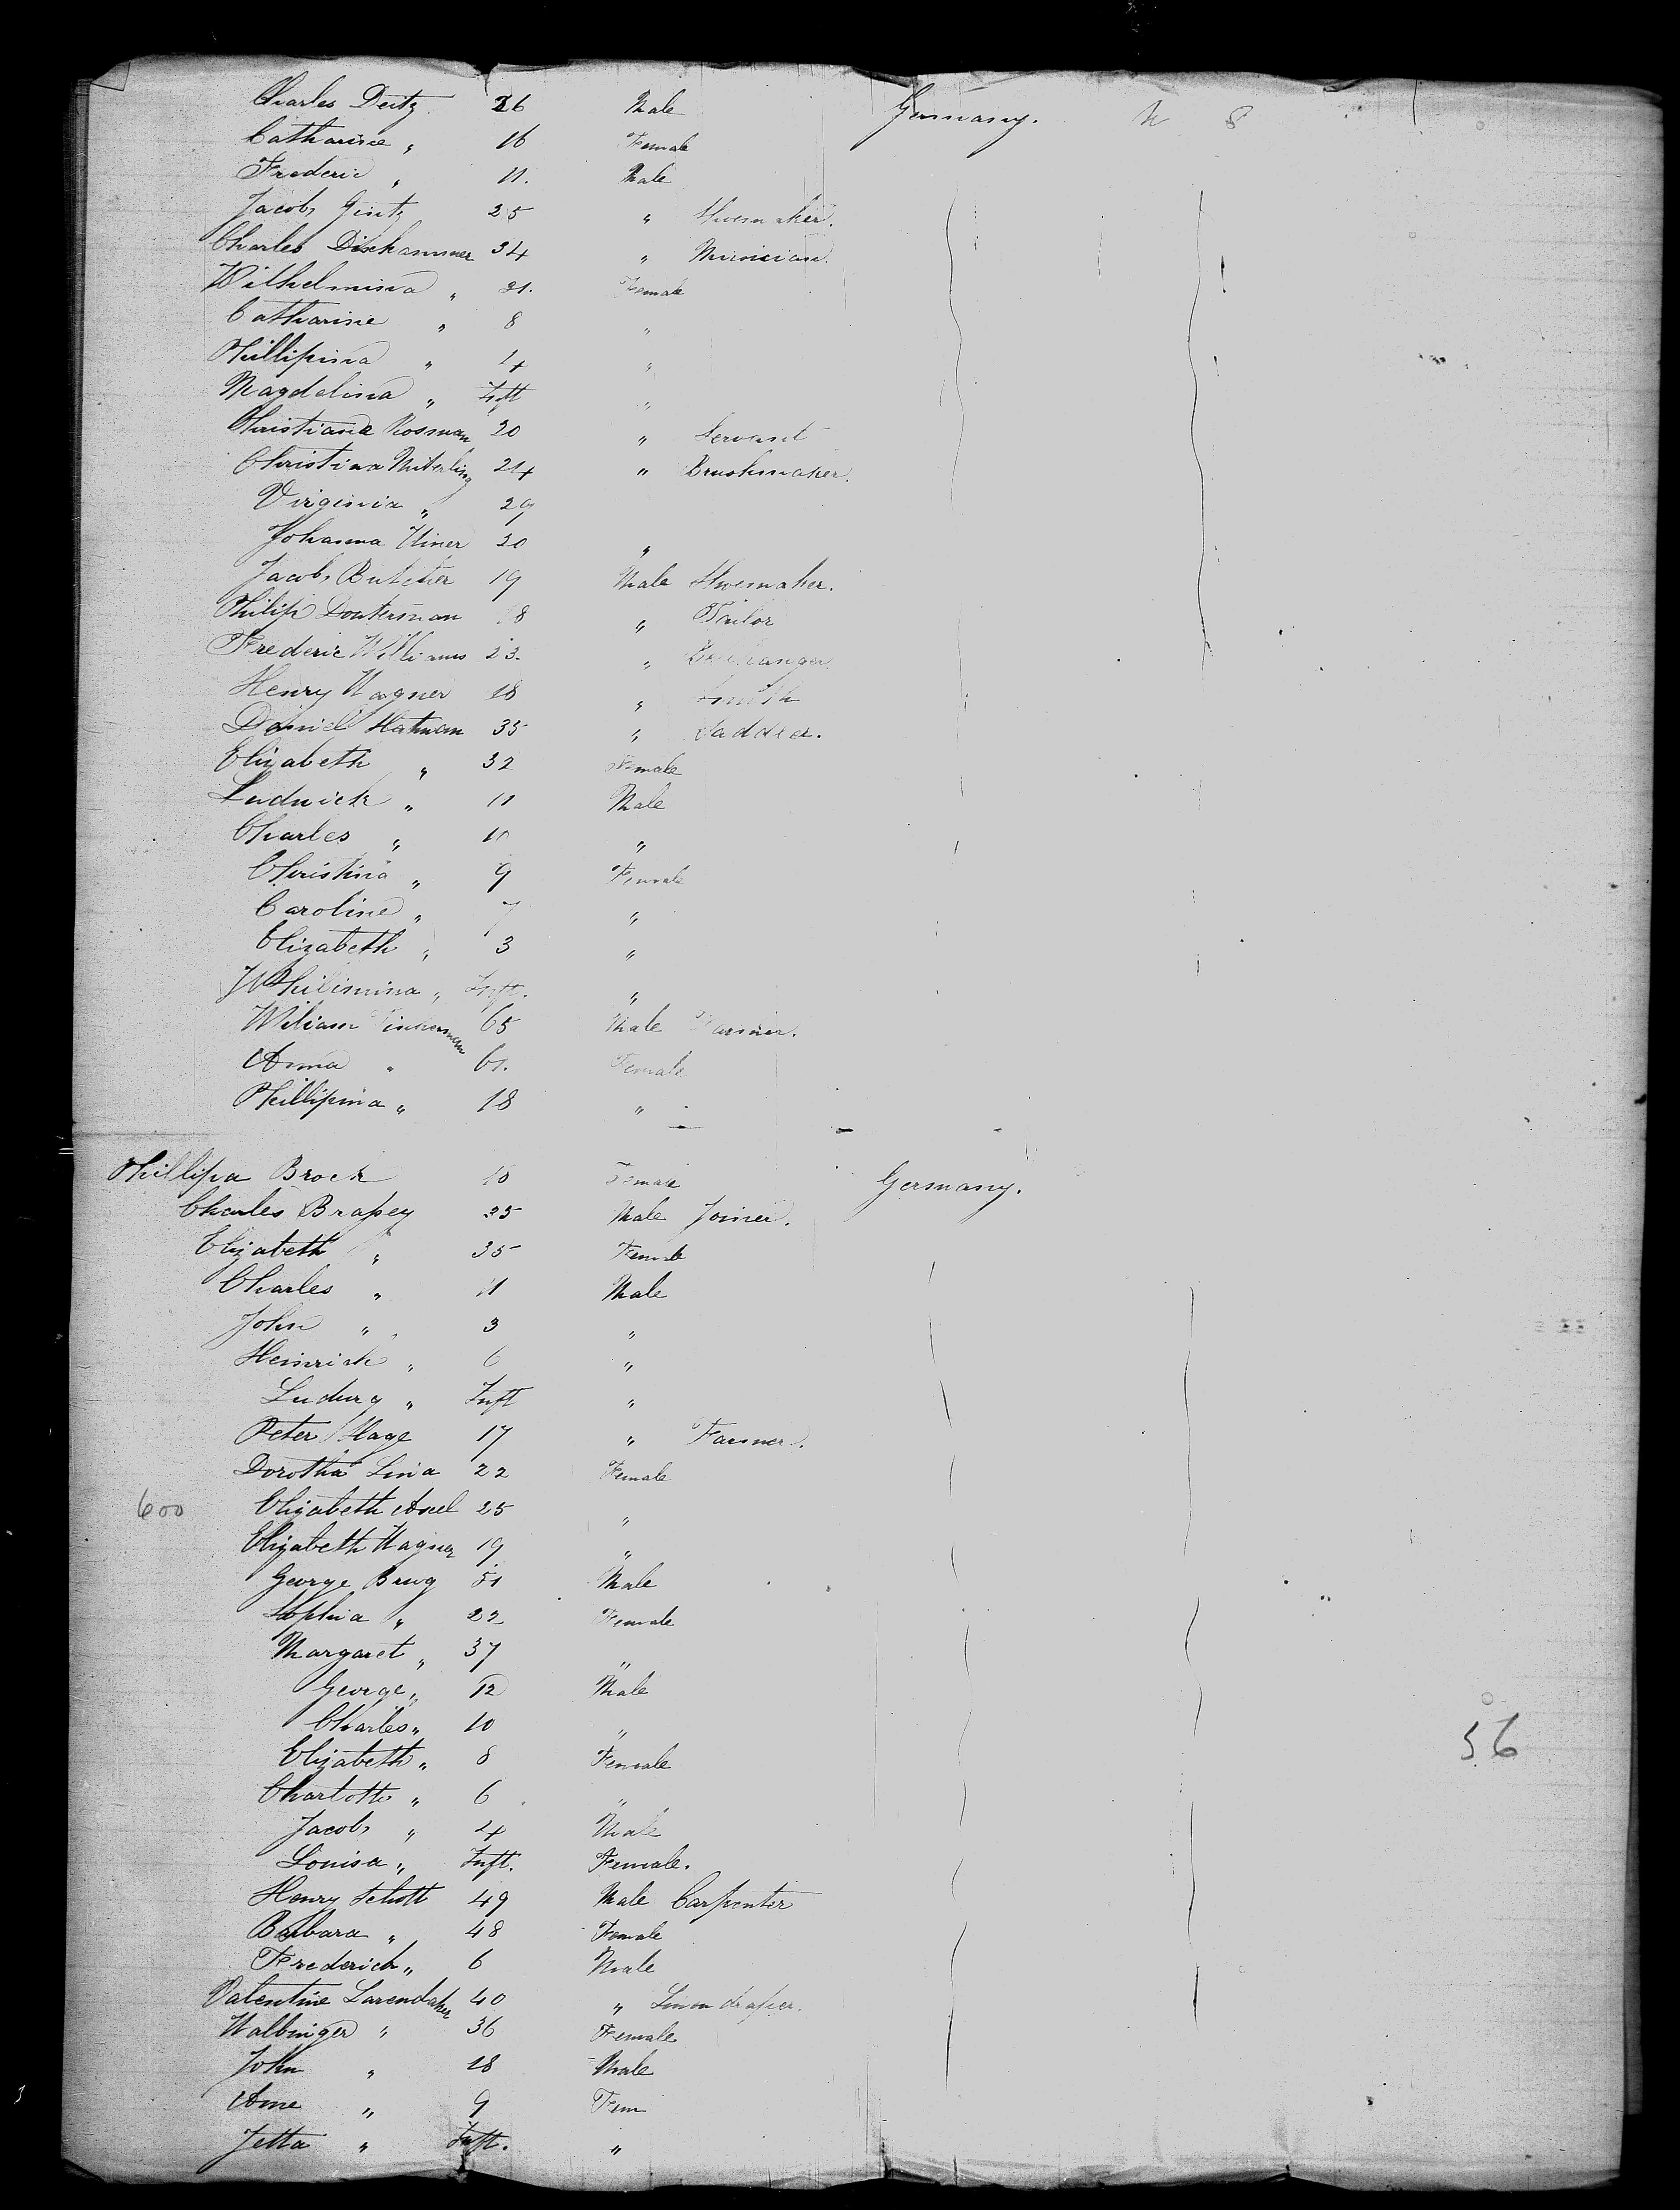 Charles Deitz 26 Male Germany. U S
Catharine " 16 Female
Frederic " 11. Male
Jacob Gintz 25 " Shoemaker.
Charles Dishammer 34 " Musician.
Wilhelmina " 21. Female
Catharine " 8 "
Phillipina " 4 "
Magdalina " Inft "
Christiana Rosman 20 " Servant
Christina 24 " Brushmaker.
Virginia " 29
Johanna 20 "
Jacob Butcher 19 Male Shoemaker.
Philip Douterman 18 " Tailor
Frederic Williams 23. "
Henry Wagner 18 " Smith
Daniel Hatman 35 " Saddler.
Elizabeth " 32 Female
Ludwick " 11 Male
Charles " 10 "
Christina " 9 Female
Caroline " 7 "
Elizabeth " 3 "
Whilimina " Inft. "
Wiliam 65 Male Farmer.
Anna " 61. Female
Phillipina " 18 "
Phillipa Brock 10 Female Germany.
Charles Brassey 35 Male Joiner.
Elizabeth " 35 Female
Charles " 11 Male
John " 3 "
Heinrich " 6 "
Ludwig " Inft "
Peter Hage 17 " Farmer.
Dorotha Lina 22 Female
600 Elizabeth 25 "
Elizabeth Wagner 19 "
George Brug 51 Male
Sophia " 22 Female
Margaret " 37 "
George " 12 Male
Charles " 10 "
Elizabeth " 8 Female
56
Charlotte " 6 "
Jacob " 4 Male
Louisa " Inft. Female.
Henry Schott 49 Male Carpenter
Barbara " 48 Female
Frederich " 6 Male
Valentine 40 " Linen draper.
Walbinger " 36 Female
John " 18 Male
Anne " 9 Fem
Jetta " Inft. "